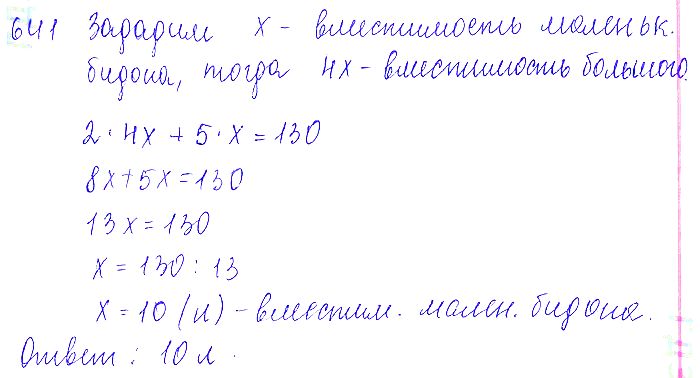 641 Зададим x - вместимость маленьк.
бидона, тогда 4x - вместимость большого.
2 · 4x + 5 · x = 130
8x + 5x = 130
13x = 130
x = 130 : 13
x = 10 (л) - вместим. мален. бидона.
Ответ: 10 л.